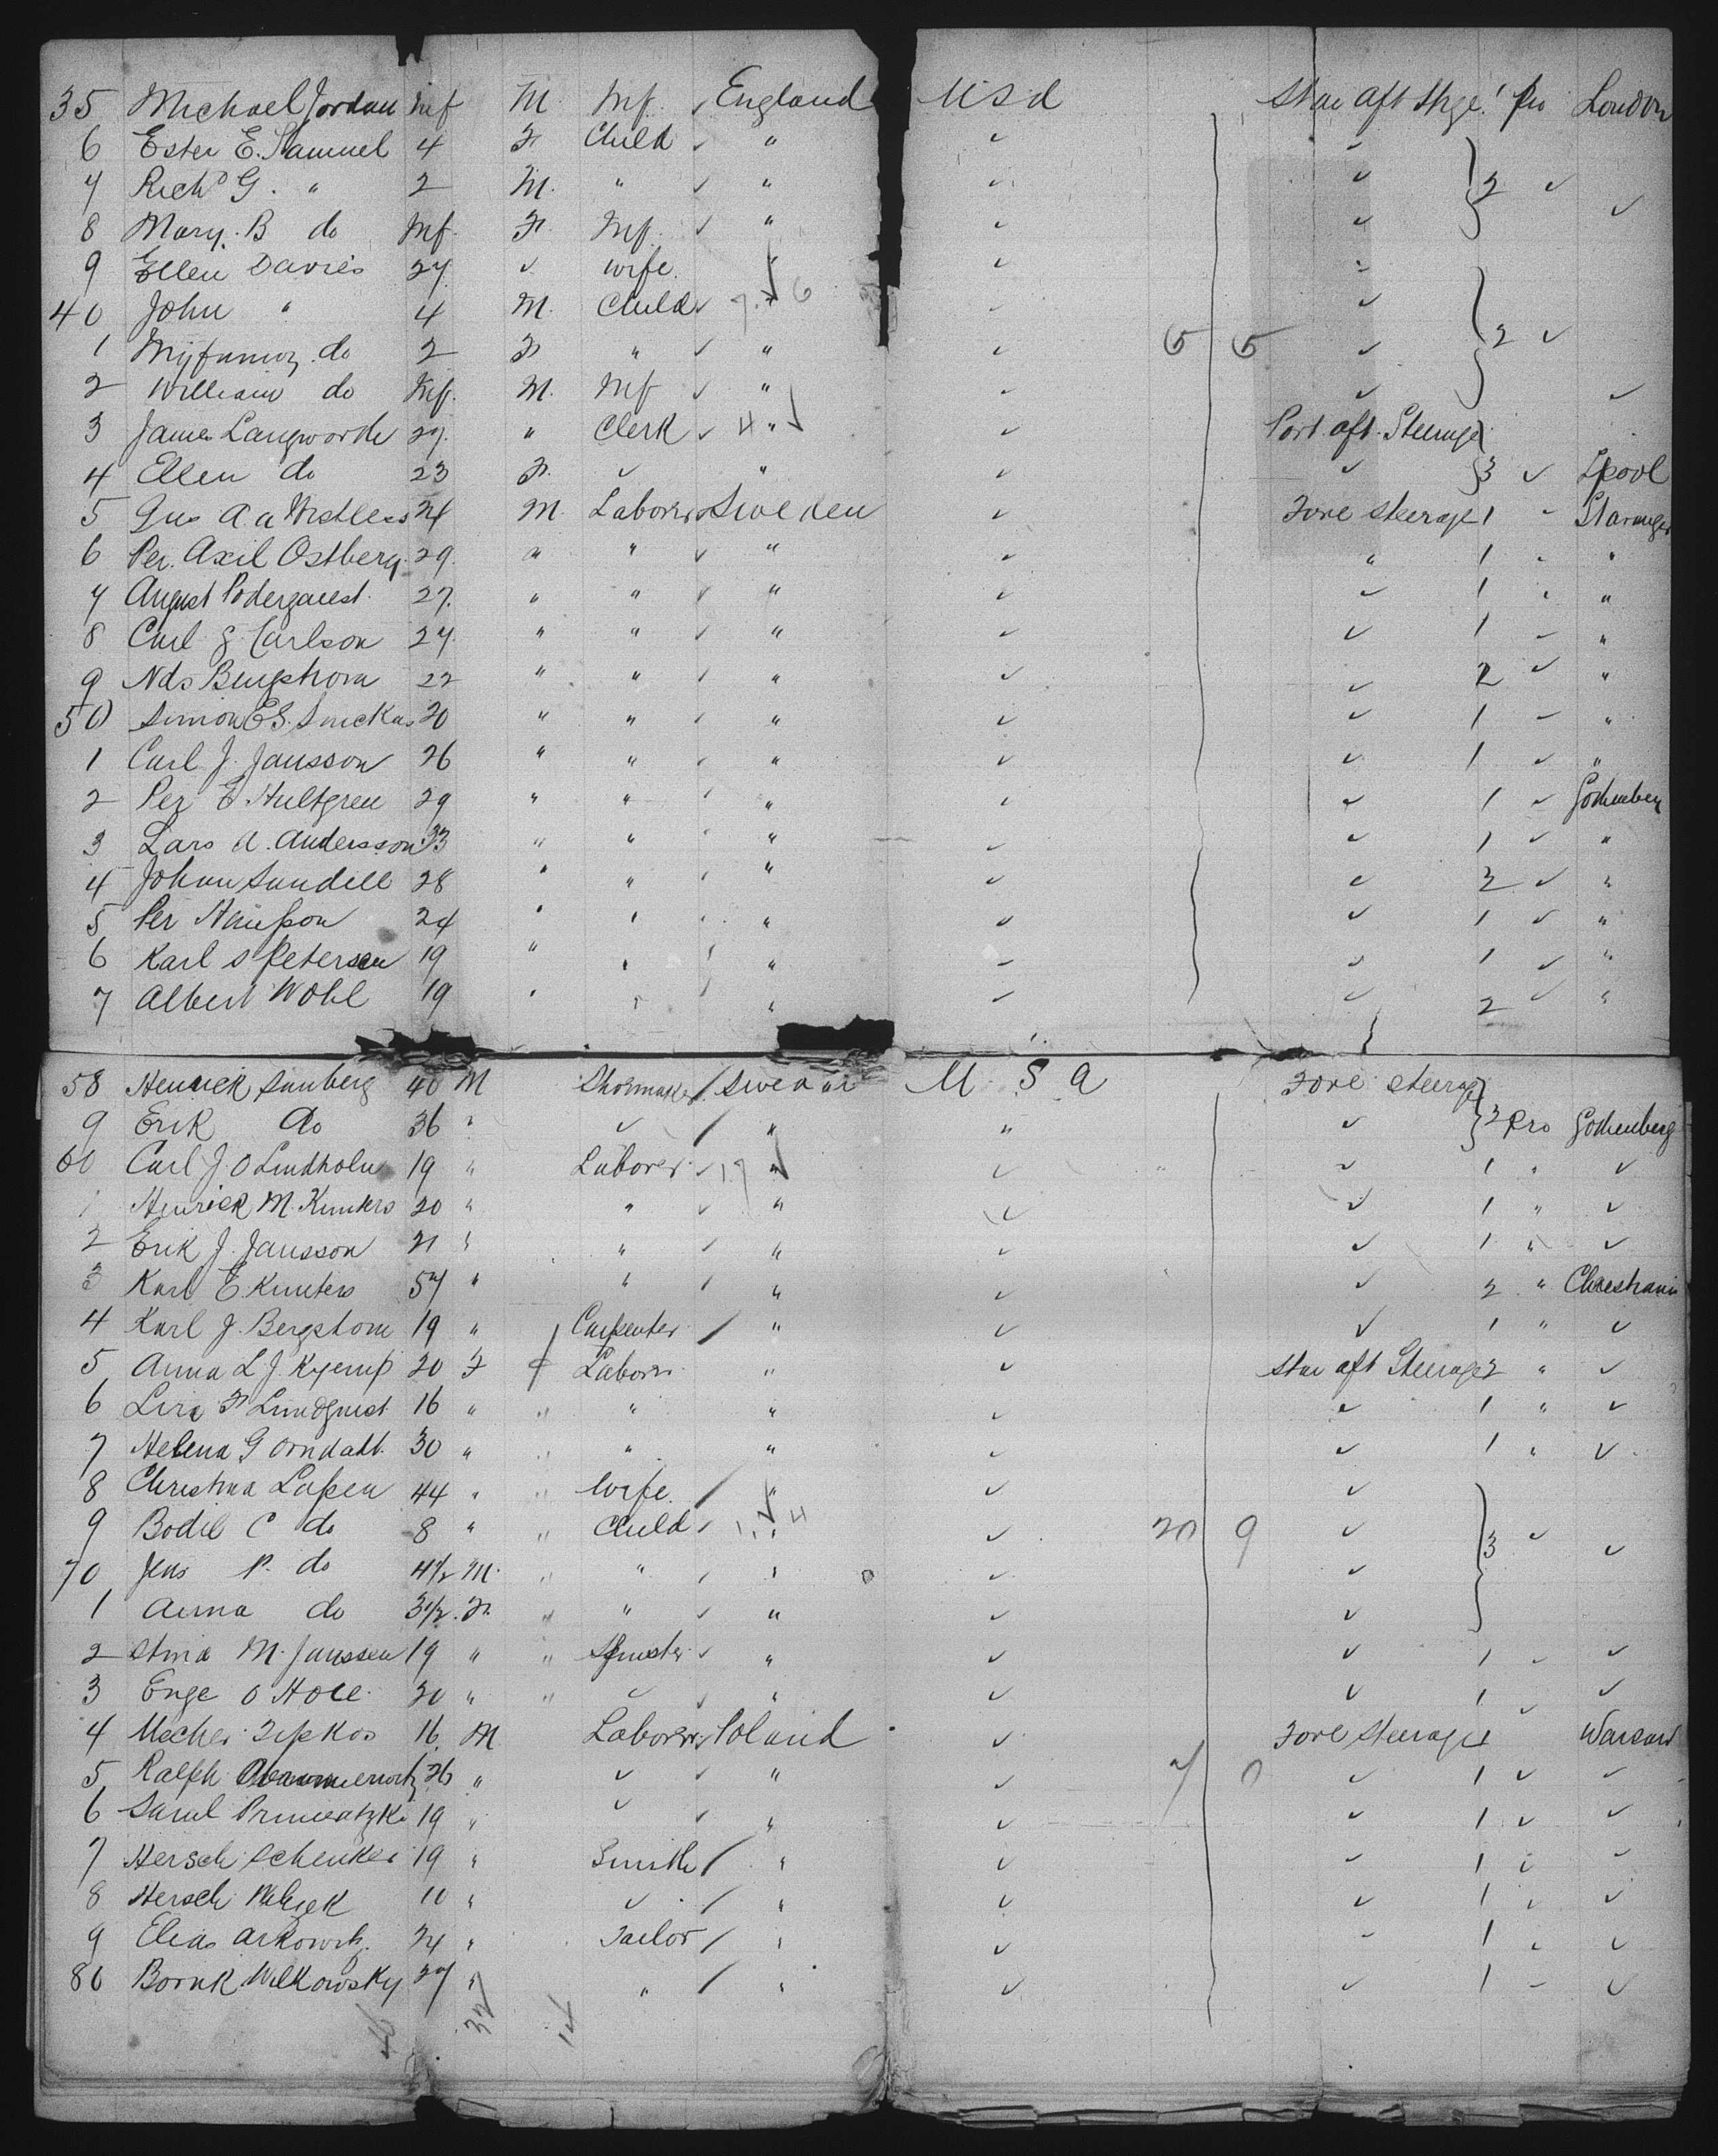 35 Michael Jordan Inf M. Inf. ✓ England U S A Star aft Strge 1 Pro London
6 Ester E. Samuel 4 F Child ✓ " ✓ ✓
7 Richd G. " 2 M. " ✓ " ✓ ✓ 2 ✓
8 Mary. B do Inf. F. Inf. ✓ " ✓ ✓ ✓
9 Ellen Davies 27 ✓ wife. " ✓ ✓
40 John " 4 M. Child ✓ " 6 ✓ ✓
1 do 2 F " ✓ " ✓ ✓ 2 ✓
2 William do Inf. M. Inf ✓ " ✓ ✓ ✓
3 James Langworth 27. " Clerk ✓ 4 " ✓ Port aft. Steerage
4 Ellen do 23 F. ✓ " ✓ ✓ 3 ✓ Lpool
5 Gus A. 24 M. Laborer Sweden ✓ Fore steerage 1 " Stavanger
6 Per. Axil Ostberg. 29. " " ✓ " ✓ " 1 " "
7 August 27. " " ✓ " ✓ ✓ 1 " "
8 Carl G. Carlson 27. " " ✓ " ✓ ✓ 1 – "
9 Nds Bergstrom 22 " " ✓ " ✓ ✓ 2 ✓ "
50 Simon E S. 20 " " ✓ " ✓ ✓ 1 – "
1 Carl J. Jansson 26 " " ✓ " ✓ ✓ 1 ✓ "
2 Per E. Hultgren 29 " " ✓ " ✓ ✓ 1 ✓ Gothenberg
3 Lars A. Andersson 33 " " ✓ " ✓ ✓ 1 ✓ "
4 Johan Sundell 28 " " ✓ " ✓ ✓ 2 ✓ "
5 Per 24 " " ✓ " ✓ ✓ 1 ✓ "
6 Karl S Petersen 19 " " ✓ " ✓ ✓ 1 ✓ "
7 Albert Wohl 19 " " ✓ " ✓ ✓ 2 ✓ "
58 Sunberg 40 M Shoemaker / Sweden U. S A Fore steerage
9 Erik do 36 " ✓ / " " ✓ 2 Pro Gothenberg
60 Carl J. O Lindholm 19 " Laborer. ✓ 17 " ✓ ✓ 1 " ✓
1 Henrick M. 20 " " ✓ " ✓ ✓ 1 " ✓
2 Erik J. Jansson 21 " " ✓ " ✓ ✓ 1 " ✓
3 Karl E. 57 " " ✓ " ✓ ✓ 2 "
4 Karl J. Bergstom 19 " Carpenter / " ✓ ✓ 1 " ✓
5 Anna L J. 20 F Laborer " ✓ Star aft Steerage 2 " ✓
6 F Lundquist 16 " " " " ✓ ✓ 1 " ✓
7 Helena G 30 " " " " ✓ ✓ 1 " ✓
8 Christina Lassen 44 " " Wife. / " ✓ ✓
9 Bodil C do 8 " " Child ✓ " 4 ✓ 20 9 ✓ 3 ✓ ✓
70 Jens P. do 4 1/2 M. " " ✓ " ✓ ✓
1 Anna do 3 1/2 F. " " ✓ " ✓ ✓
2 Stina M. Janssen 19 " " Spinster ✓ " ✓ ✓ 1 " ✓
3 Enge O 20 " " ✓ ✓ " ✓ ✓ 1 " ✓
4 16 M Laborer ✓ Poland ✓ Fore steerage 1 Warsaw
5 Ralph 26 " ✓ ✓ " ✓ 7 0 ✓ 1 ✓ ✓
6 Saml 19 " ✓ ✓ " ✓ ✓ 1 ✓ ✓
7 Hersch Schenker 19 " Smith / " ✓ ✓ 1 " ✓
8 Hersch " ✓ / " ✓ ✓ 1 " ✓
9 Elias Arkowitz 24 " Tailor / " ✓ ✓ 1 " ✓
80 Wilkowsky 27 " " / " ✓ ✓ 1 – ✓
46 32 14